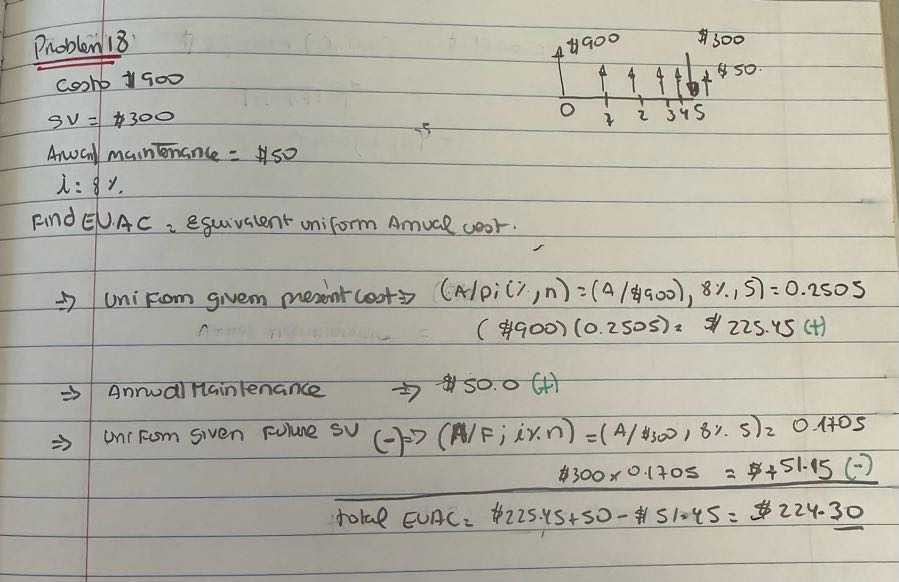 Problem 18
$900
$300
$50.
0 1 2 3 4 5
Costo $900
SV = $300
Anual maintenance = $50
i = 8%.
Find EUAC = equivalent uniform Annual cost.
⇒ Uniform given present cost ⇒ (A/P i%, n) = (A/$900), 8%, 5) = 0.2505
($900) (0.2505) = $225.45 (+)
⇒ Annual Maintenance ⇒ $50.0 (+)
⇒ Uniform given Future SV (-) ⇒ (A/F; i%. n) = (A/$300, 8%. 5) = 0.1705
$300 x 0.1705 = $+51.15 (-)
total EUAC = $225.45 + 50 - $51.45 = $224.30